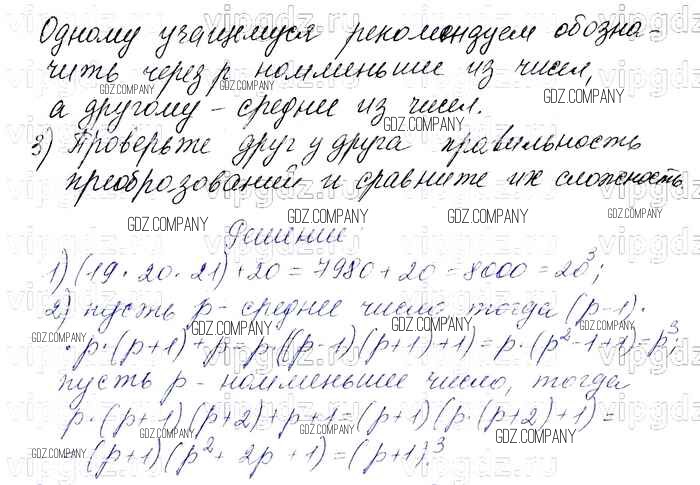 Одному учащемуся рекомендуем обозна-
чить через p наименьшее из чисел,
а другому - среднее из чисел.
3) Проверьте друг у друга правильность
преобразований и сравните их сложность.
Решение
1) (19 · 20 · 21) + 20 = 7980 + 20 = 8000 = 20³;
2) пусть p - среднее число, тогда (p-1) ·
· p · (p+1) + p = p · ((p-1)(p+1)+1) = p · (p²-1+1) = p³;
пусть p - наименьшее число, тогда
p · (p+1)(p+2) + p+1 = (p+1)(p · (p+2)+1) =
= (p+1)(p² + 2p + 1) = (p+1)³